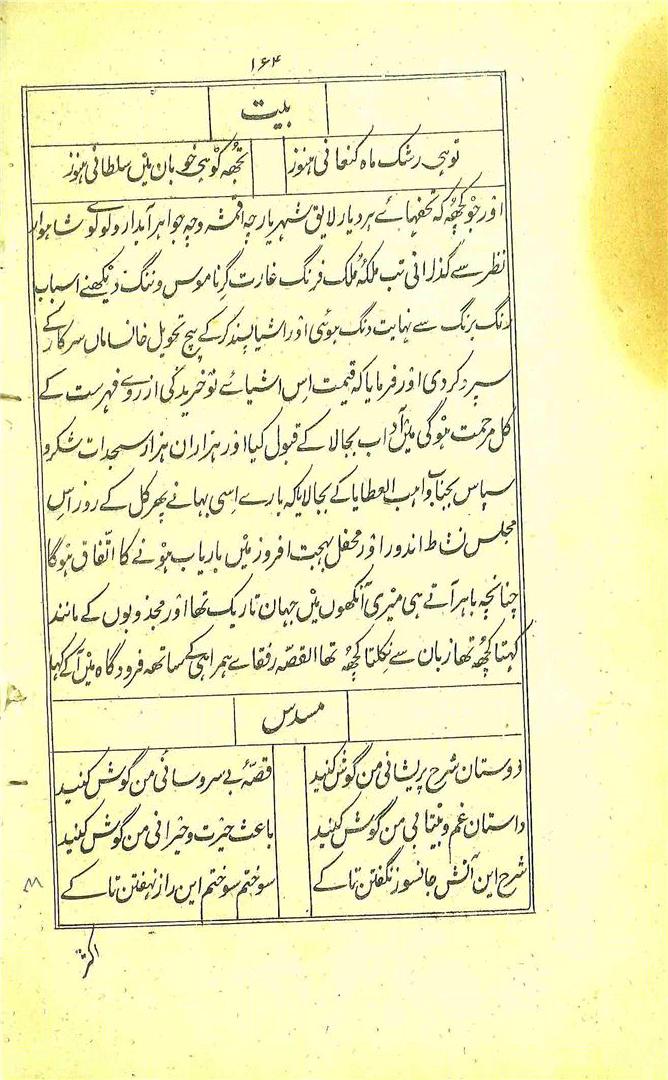 ۱۶۴
بیت
تو ہی رشک ماہ کنعانی ہنوز تجھہ کو ہی خوبان میں سلطانی ہنوز
اور جو کچھہ کہ تحفہائے ہر دیار لایق شہریار چہ اقمشہ و چہ جواہر آبدار و لولوئے شاہوار
نظر سے گذرانی تب ملکۂ ملک فرنگ غارت گر ناموس و ننگ دیکھنے اسباب
رنگ برنگ سے نہایت دنگ ہوئی اور اشیا پسند کر کے بیچ تحویل خانساماں سرکار کے
سپرد کر دی اور فرمایا کہ قیمت اس اشیائے نو خرید کی از روے فہرست کے
کل مرحمت ہوگی میں آداب بجالا کے قبول کیا اور ہزاران ہزار سجدات شکر و
سپاس بجناب واہب العطایا کے بجالایا کہ بارے اسی بہانے پھر کل کے روز اس
مجلس نشاط اندوز اور محفل بہجت افروز میں باریاب ہونے کا اتّفاق ہوگا
چنانچہ باہر آتے ہی میری آنکھوں میں جہان تاریک تھا اور مجذوبوں کے مانند
کہتا کچھہ تھا زبان سے نکلتا کچھہ تھا القصّہ رفقائے ہمراہی کے ساتھہ فرودگاہ میں آکے کہا
مسدس
دوستان شرح پریشانی من گوش کنید قصّۂ بے سر و سامانی من گوش کنید
داستان غم و بیتابی من گوش کنید باعث حیرت و حیرانی من گوش کنید
شرح این آتش جانسوز نگفتن تا کے سوختم سوختم این راز نہفتن تا کے